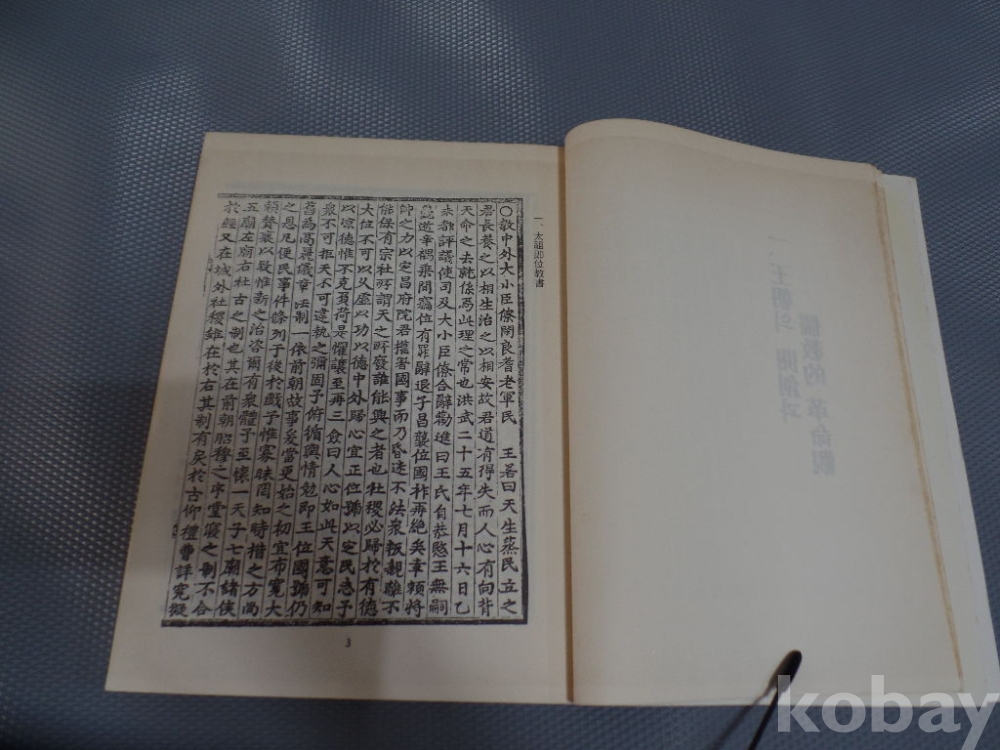 一、太祖卽位教書
○敎中外大小臣僚閑良耆老軍民 王若曰天生蒸民立之
君長養之以相生治之以相安故君道有得失而人心有向背
天命之去就係焉此理之常也洪武二十五年七月十六日乙
未都評議使司及大小臣僚合辭勸進曰王氏自恭愍王無嗣
薨逝辛禑乘間竊位有罪辭退子昌襲位國祚再絶矣幸賴將
帥之力以定昌府院君權署國事而乃昏迷不法衆叛親離不
能保有宗社所謂天之所廢誰能興之者也社稷必歸於有德
大位不可以久虛以功以德中外歸心宜正位號以定民志予
以涼德惟不克負荷是懼讓至再三僉曰人心如此天意可知
衆不可拒天不可違執之彌固予俯循輿情勉卽王位國號仍
舊爲高麗儀章法制一依前朝故事爰當更始之初宜布寬大
之恩凡便民事件條列于後於戲予惟寡昧罔知時措之方尙
賴贊襄以致惟新之治咨爾有衆體予至懷一天子七廟諸侯
五廟左廟右社古之制也其在前朝昭穆之序堂寢之制不合
於經又在城外社稷雖在於右其制有戾於古仰禮曹詳究擬
3
一、王朝의 開創과
儒教的 革命觀
kobay